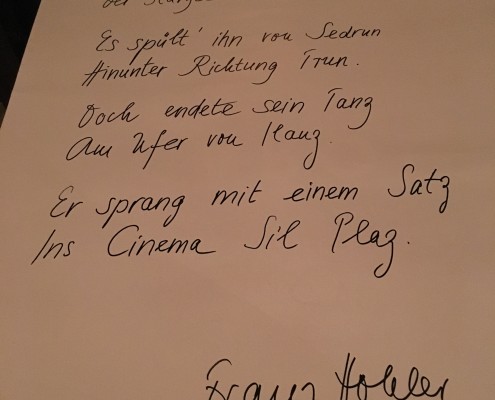 Es spült' ihn von Sedrun
Hinunter Richtung Trun.
Doch endete sein Tanz
Am Ufer von Ilanz.
Er sprang mit einem Satz
Ins Cinema Sil Plaz.
Franz Hohler